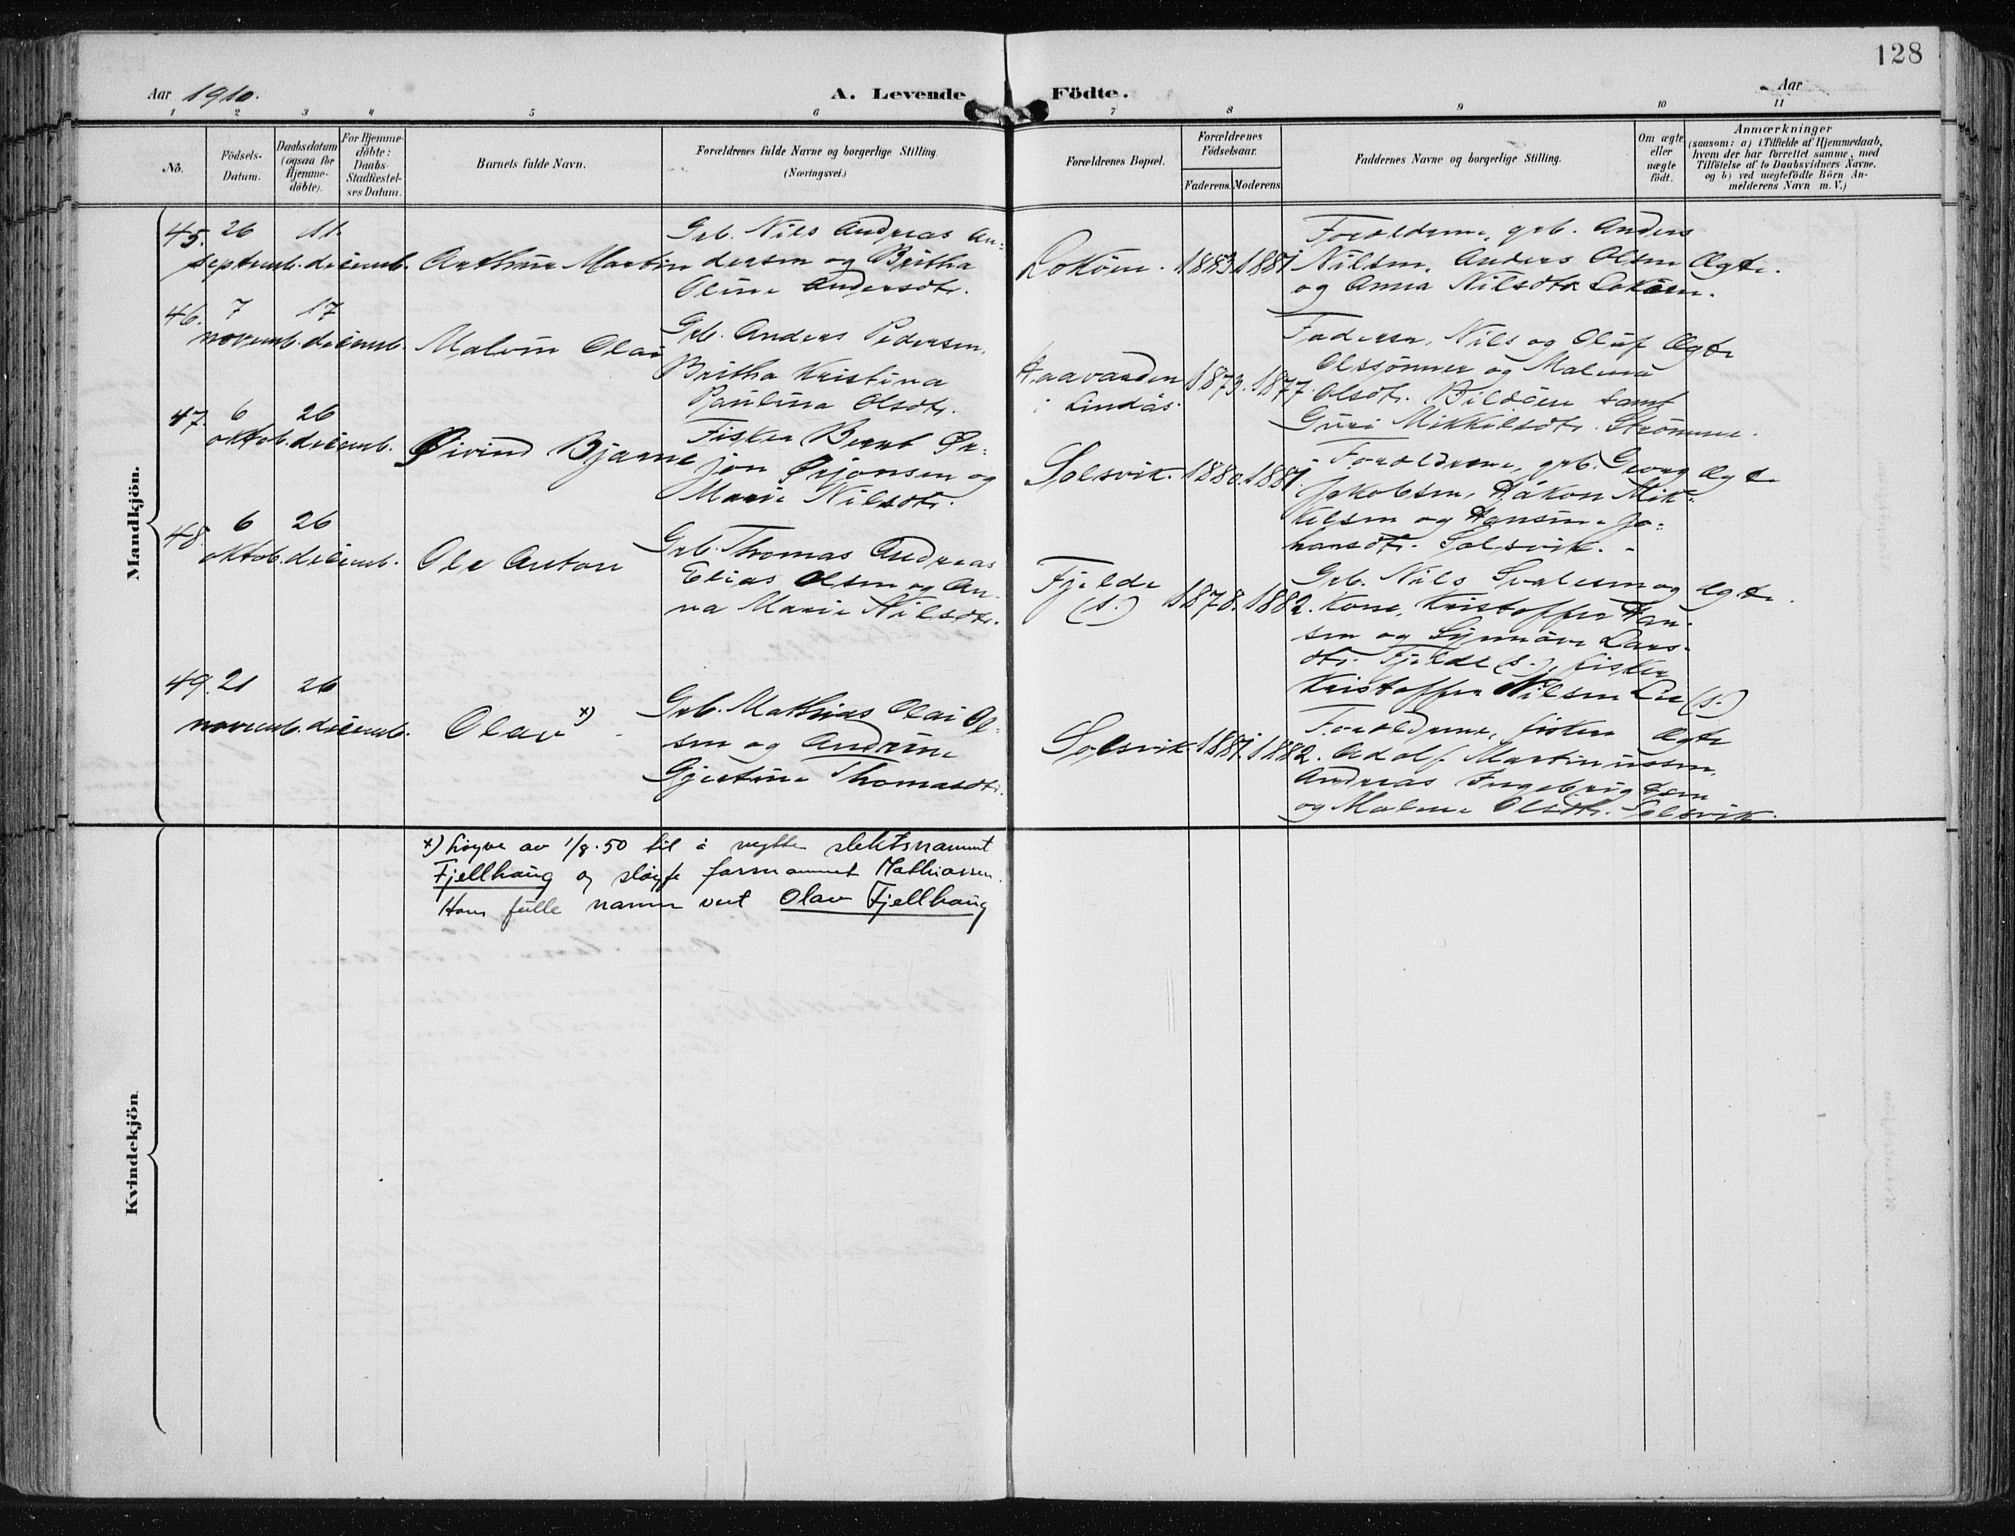 128
Aar 1910.
A. Levende Födte.
Aar
1 2 3 4 5 6 7 8 9 10 11
No.
Födsels-
Datum.
Daabsdatum
(ogsaa for
Hjemme-
döbte).
For Hjemme-
döbte:
Daabs-
Stadfæstel-
ses Datum.
Barnets fulde Navn.
Forældrenes fulde Navne og borgerlige Stilling.
(Næringsvei.)
Forældrenes Bopæl.
Forældrenes
Födselsaar.
Faderens. Moderens.
Faddernes Navne og borgerlige Stilling.
Om ægte
eller
uægte
födt.
Anmærkninger
(saasom: a) i Tilfælde af Hjemmedaab,
hvem der har forrettet samme, med
Tilföielse af to Daabsvidners Navne.
og b) ved uægtefödte Börn An-
melderens Navn m. V.)
Mandkjön.
45. 26 septemb. 11. decemb. Arthur Martin
Grb. Nils Andreas An-
dersen og Britha
Oline Andersdtr.
Lokøen. 1883. 1881.
Forældrene, grb. Anders
Nilsen, Anders Olsen
og Anna Nilsdtr. Lokøen.
Ægte.
46. 7 novemb. 17 decemb. Malvin Olai
Grb. Anders Pedersen,
Britha Kristina
Paulina Olsdtr.
Haavarden
i Lindås. 1879. 1877.
Faderen, Nils og Oluf
Olssønner og Malena
Olsdtr. Bildøen samt
Guri Mikkelsdtr. Strømme.
Ægte
47. 6 oktob. 26 decemb. Øivind Bjarne
Fisker Bernt Ør-
jan Ørjansen og
Marie Nilsdtr.
Solsvik. 1880. 1881.
Forældrene, grb. Georg
Jakobsen, Håkon Mik-
kelsen og Hansine Jo-
hansdtr. Solsvik.
Ægte
48. 6 oktob. 26 decemb. Ole Anton
Grb. Thomas Andreas
Elias Olsen og An-
na Marie Nilsdtr.
Fjelde
(s.) 1878. 1882.
Grb. Nils Svalesen og
Kone, Kristoffer Han-
sen og Synnøve Lars-
dtr. Fjelde (s.), fisker
Kristoffer Nilsen Lie (s.)
Ægte.
49. 21 novemb. 26 decemb. Olav x)
Grb. Mathias Olai Ol-
sen og Andrine
Gjertine Thomasdtr.
Solsvik. 1881. 1882.
Forældrene, fisker
Adolf Martinussen,
Andreas Ingebrigtsen
og Malene Olsdtr. Solsvik.
Ægte
Kvindekjön.
x) Løyve av 1/8.50 til å nytte slektsnamnet
Fjellhaug og sløyfe farsnamnet Mathiassen.
Hans fulle namn vert Olav Fjellhaug